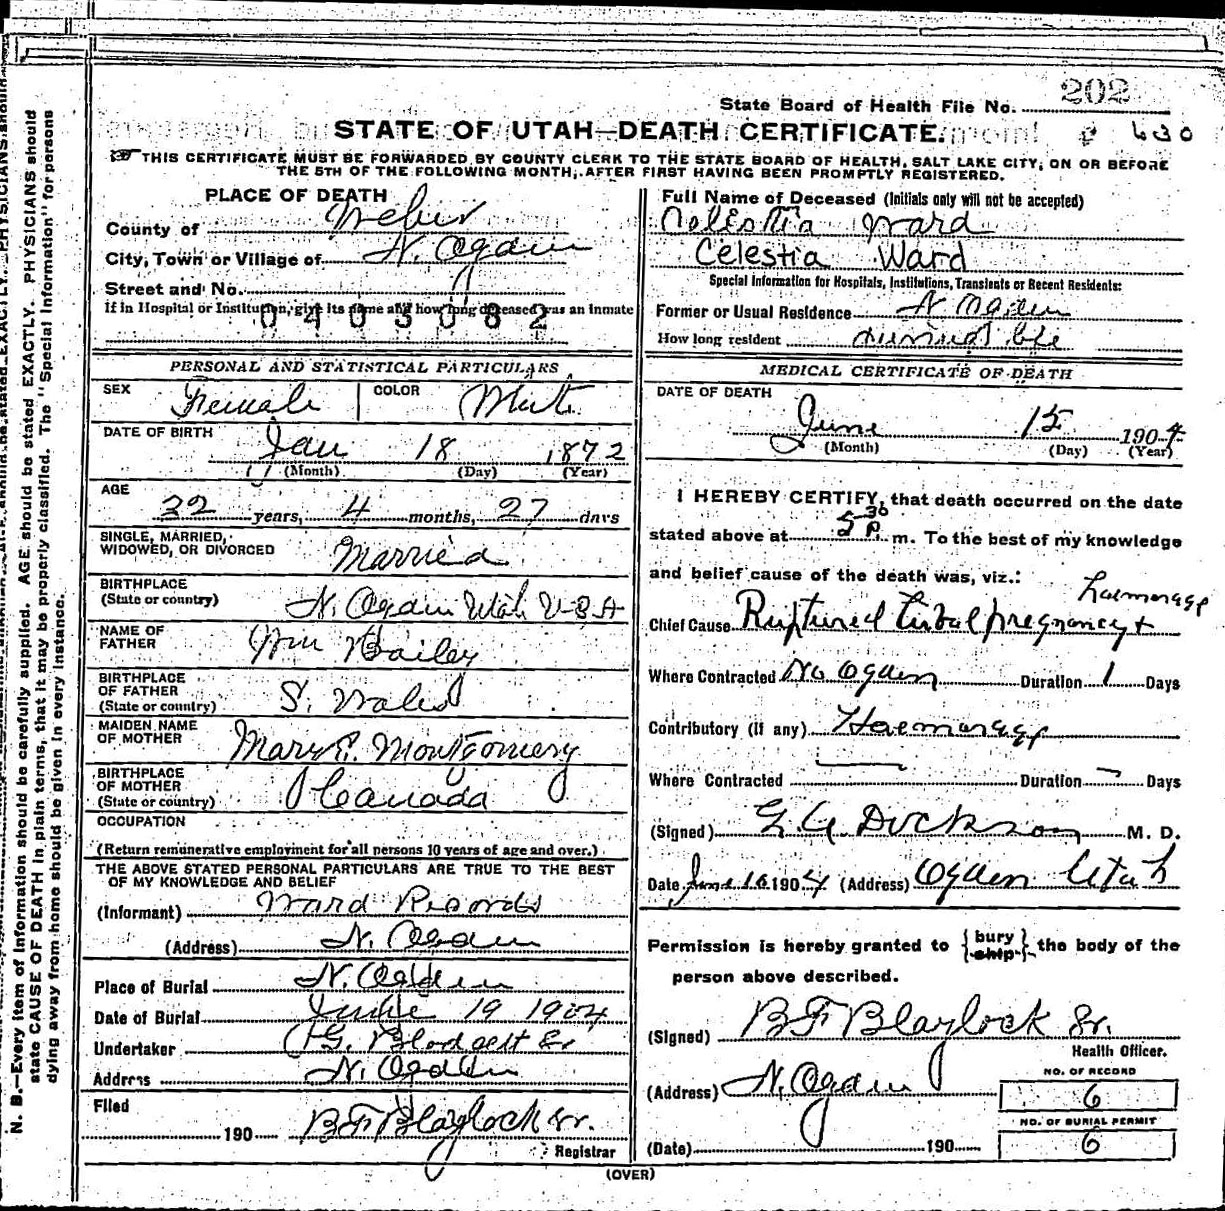 State Board of Health File No. 202
STATE OF UTAH—DEATH CERTIFICATE.
630
THIS CERTIFICATE MUST BE FORWARDED BY COUNTY CLERK TO THE STATE BOARD OF HEALTH, SALT LAKE CITY, ON OR BEFORE
THE 5TH OF THE FOLLOWING MONTH, AFTER FIRST HAVING BEEN PROMPTLY REGISTERED.
PLACE OF DEATH
County of Weber
City, Town or Village of N. Ogden
Street and No. "
If in Hospital or Institution, give its name and how long deceased was an inmate
0403082
PERSONAL AND STATISTICAL PARTICULARS
SEX Female COLOR White
DATE OF BIRTH Jan 18 1872
(Month) (Day) (Year)
AGE
32 years, 4 months, 27 days
SINGLE, MARRIED,
WIDOWED, OR DIVORCED Married
BIRTHPLACE
(State or country) N. Ogden Utah U-S-A
NAME OF
FATHER Wm Bailey
BIRTHPLACE
OF FATHER
(State or country) S. Wales
MAIDEN NAME
OF MOTHER Mary E. Montgomery
BIRTHPLACE
OF MOTHER
(State or country) Canada
OCCUPATION
(Return remunerative employment for all persons 10 years of age and over.)
THE ABOVE STATED PERSONAL PARTICULARS ARE TRUE TO THE BEST
OF MY KNOWLEDGE AND BELIEF
(Informant) Ward Records
(Address) N. Ogden
Place of Burial N. Ogden
Date of Burial June 19 1904
Undertaker G. Blodgett Sr
Address N. Ogden
Filed
190 BF Blaylock Sr.
Registrar
Full Name of Deceased (Initials only will not be accepted)
Celestia Ward
Celestia Ward
Special Information for Hospitals, Institutions, Transients or Recent Residents:
Former or Usual Residence N Ogden
How long resident during life
MEDICAL CERTIFICATE OF DEATH
DATE OF DEATH
June 15 1904
(Month) (Day) (Year)
I HEREBY CERTIFY, that death occurred on the date
stated above at 5 30 P. m. To the best of my knowledge
and belief cause of the death was, viz.:
Chief Cause Ruptured tubal pregnancy + haemorage
Where Contracted No Ogden Duration 1 Days
Contributory (if any) Haemorage
Where Contracted — Duration — Days
(Signed) Dickson M. D.
Date June 16 1904 (Address) Ogden Utah
Permission is hereby granted to {bury
ship} the body of the
person above described.
(Signed) BF Blaylock Sr.
Health Officer.
(Address) N. Ogden
NO. OF RECORD
6
NO. OF BURIAL PERMIT
6
(Date) 190
(OVER)
N. B.—Every item of information should be carefully supplied. AGE should be stated EXACTLY. PHYSICIANS should
state CAUSE OF DEATH in plain terms, that it may be properly classified. The "Special Information" for persons
dying away from home should be given in every instance.